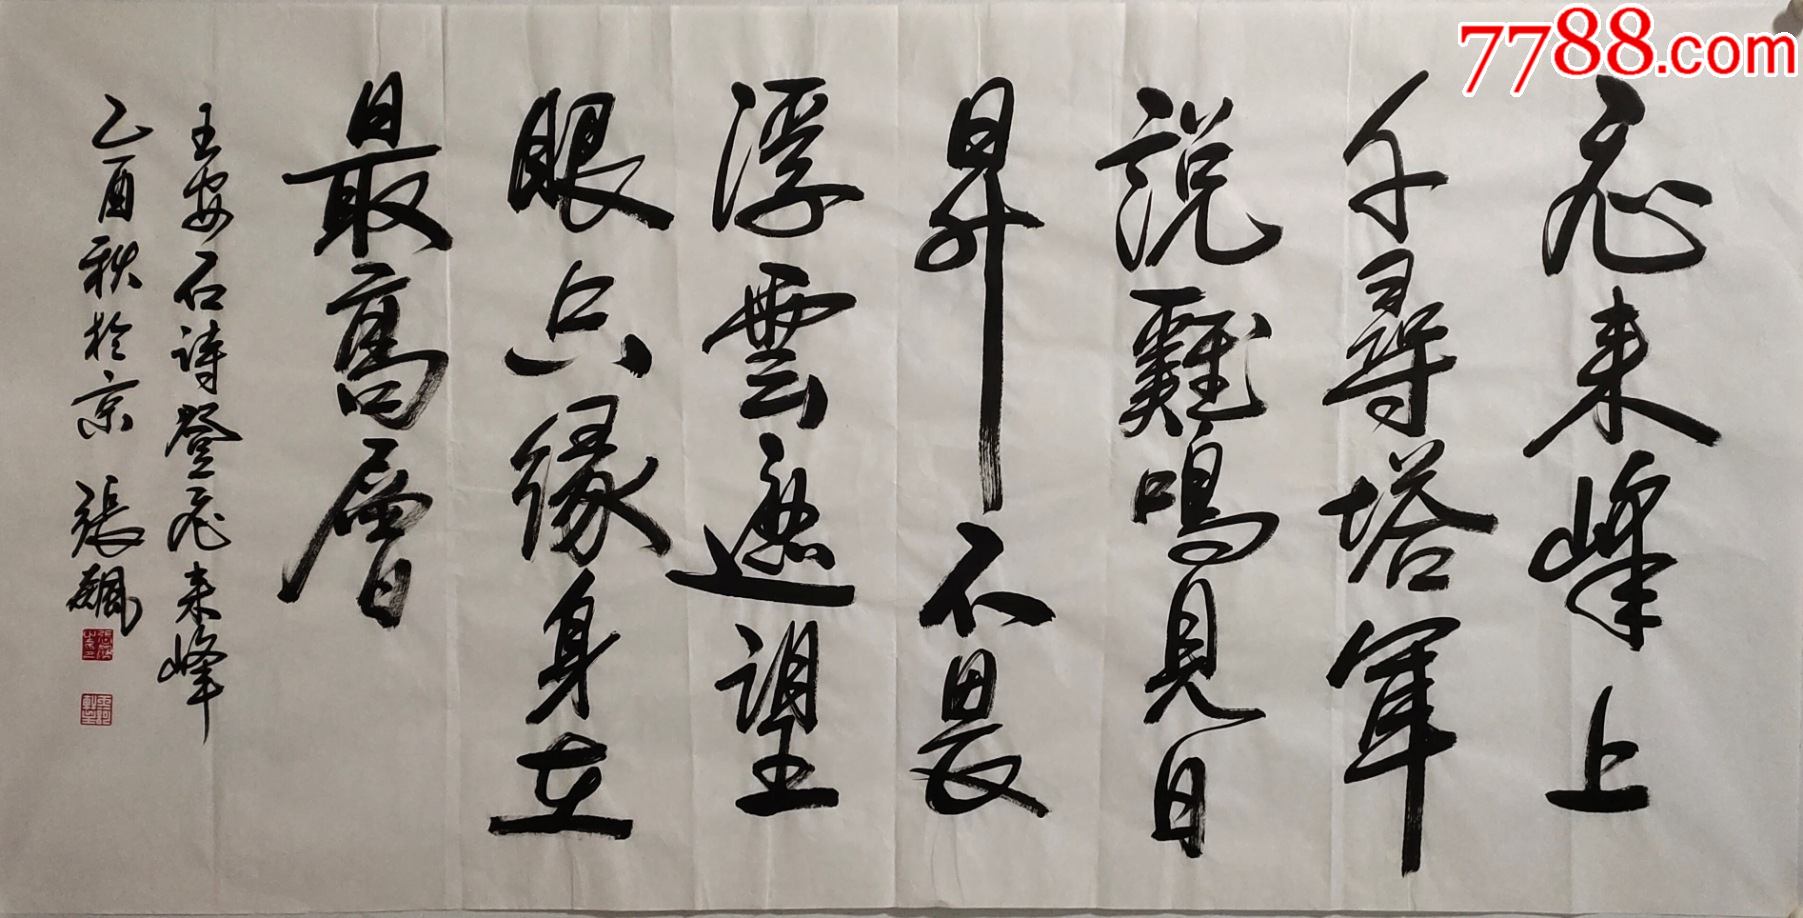 7788.com
飛来峰上
千尋塔聞
說雞鳴見日
昇不畏
浮雲遮望
眼只緣身在
最高層
王安石詩登飛来峰
乙酉秋於京 張飆